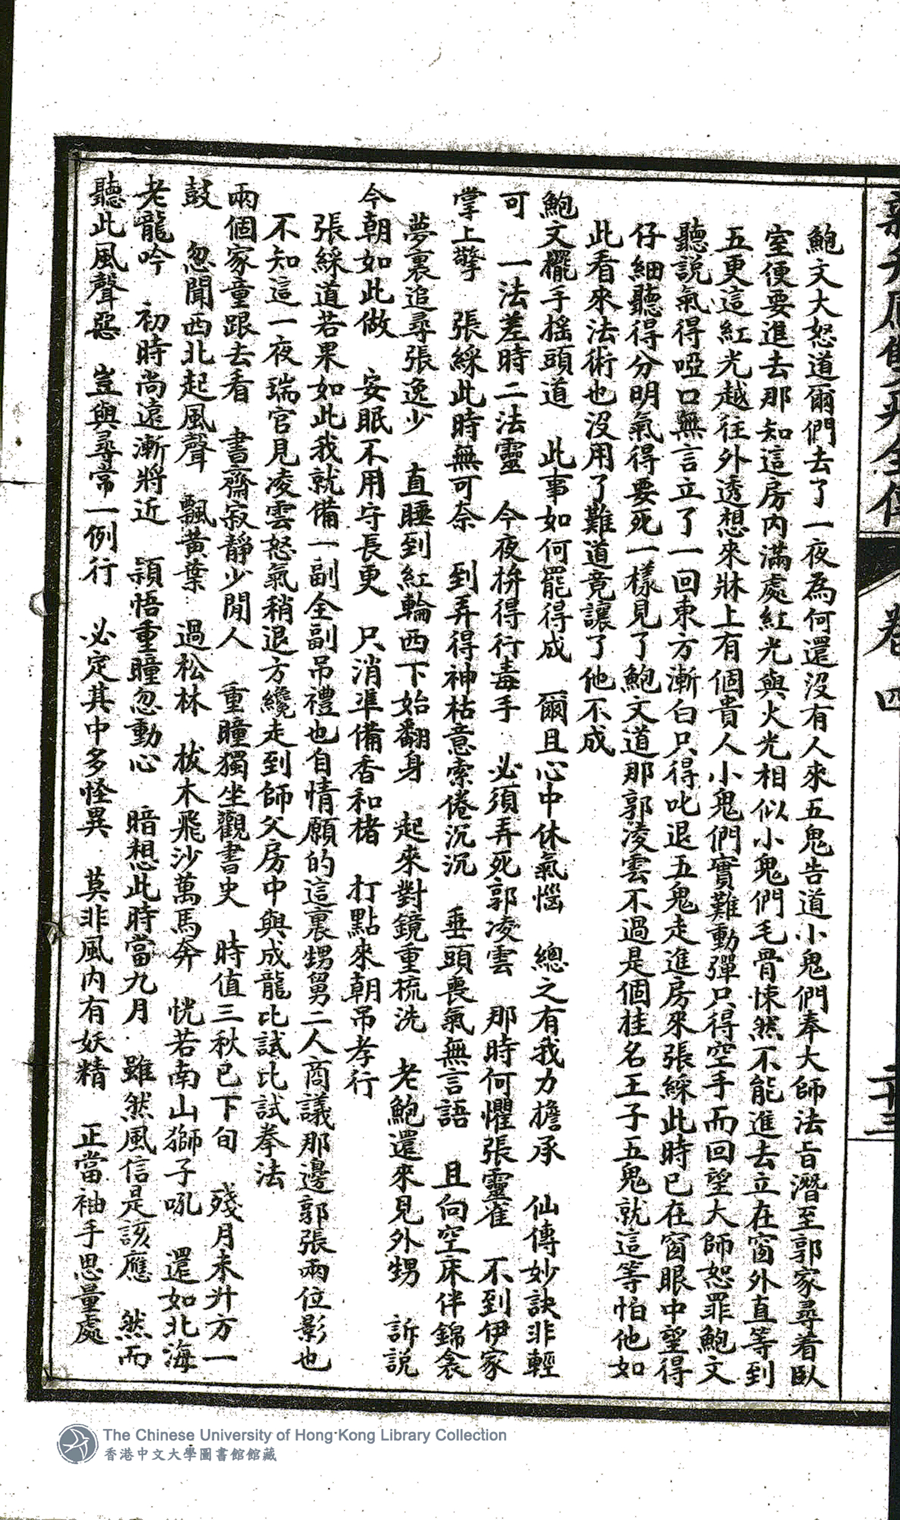 鮑文大怒道爾們去了一夜為何還沒有人來五鬼告道小鬼們奉大師法旨潛至郭家尋着臥
室便要進去那知這房內滿處紅光與火光相似小鬼們毛骨悚然不能進去立在窗外直等到
五更這紅光越往外透想來牀上有個貴人小鬼們實難動彈只得空手而回望大師恕罪鮑文
聽說氣得啞口無言立了一回東方漸白只得叱退五鬼走進房來張綵此時已在窗眼中望得
仔細聽得分明氣得要死一樣見了鮑文道那郭凌雲不過是個挂名王子五鬼就這等怕他如
此看來法術也沒用了難道竟讓了他不成
鮑文擺手搖頭道 此事如何罷得成 爾且心中休氣惱 總之有我力擔承 仙傳妙訣非輕
可 一法差時二法靈 今夜拚得行毒手 必須弄死郭凌雲 那時何懼張靈雀 不到伊家
掌上擎 張綵此時無可奈 到弄得神枯意索倦沉沉 垂頭喪氣無言語 且向空床伴錦衾
夢裏追尋張逸少 直睡到紅輪西下始翻身 起來對鏡重梳洗 老鮑還來見外甥 訴說
今朝如此做 安眠不用守長更 只消準備香和楮 打點來朝吊孝行
張綵道若果如此我就備一副全副吊禮也自情願的這裏甥舅二人商議那邊郭張兩位影也
不知這一夜瑞官見凌雲怒氣稍退方纔走到師父房中與成龍比試比試拳法
兩個家童跟去看 書齋寂靜少閒人 重瞳獨坐觀書史 時值三秋已下旬 殘月未升方一
鼓 忽聞西北起風聲 飄黃葉 過松林 拔木飛沙萬馬奔 恍若南山獅子吼 還如北海
老龍吟 初時尚遠漸將近 頴悟重瞳忽動心 暗想此時當九月 雖然風信是該應 然而
聽此風聲惡 豈與尋常一例行 必定其中多怪異 莫非風內有妖精 正當袖手思量處
卷四
二十三
The Chinese University of Hong Kong Library Collection
香港中文大學圖書館館藏